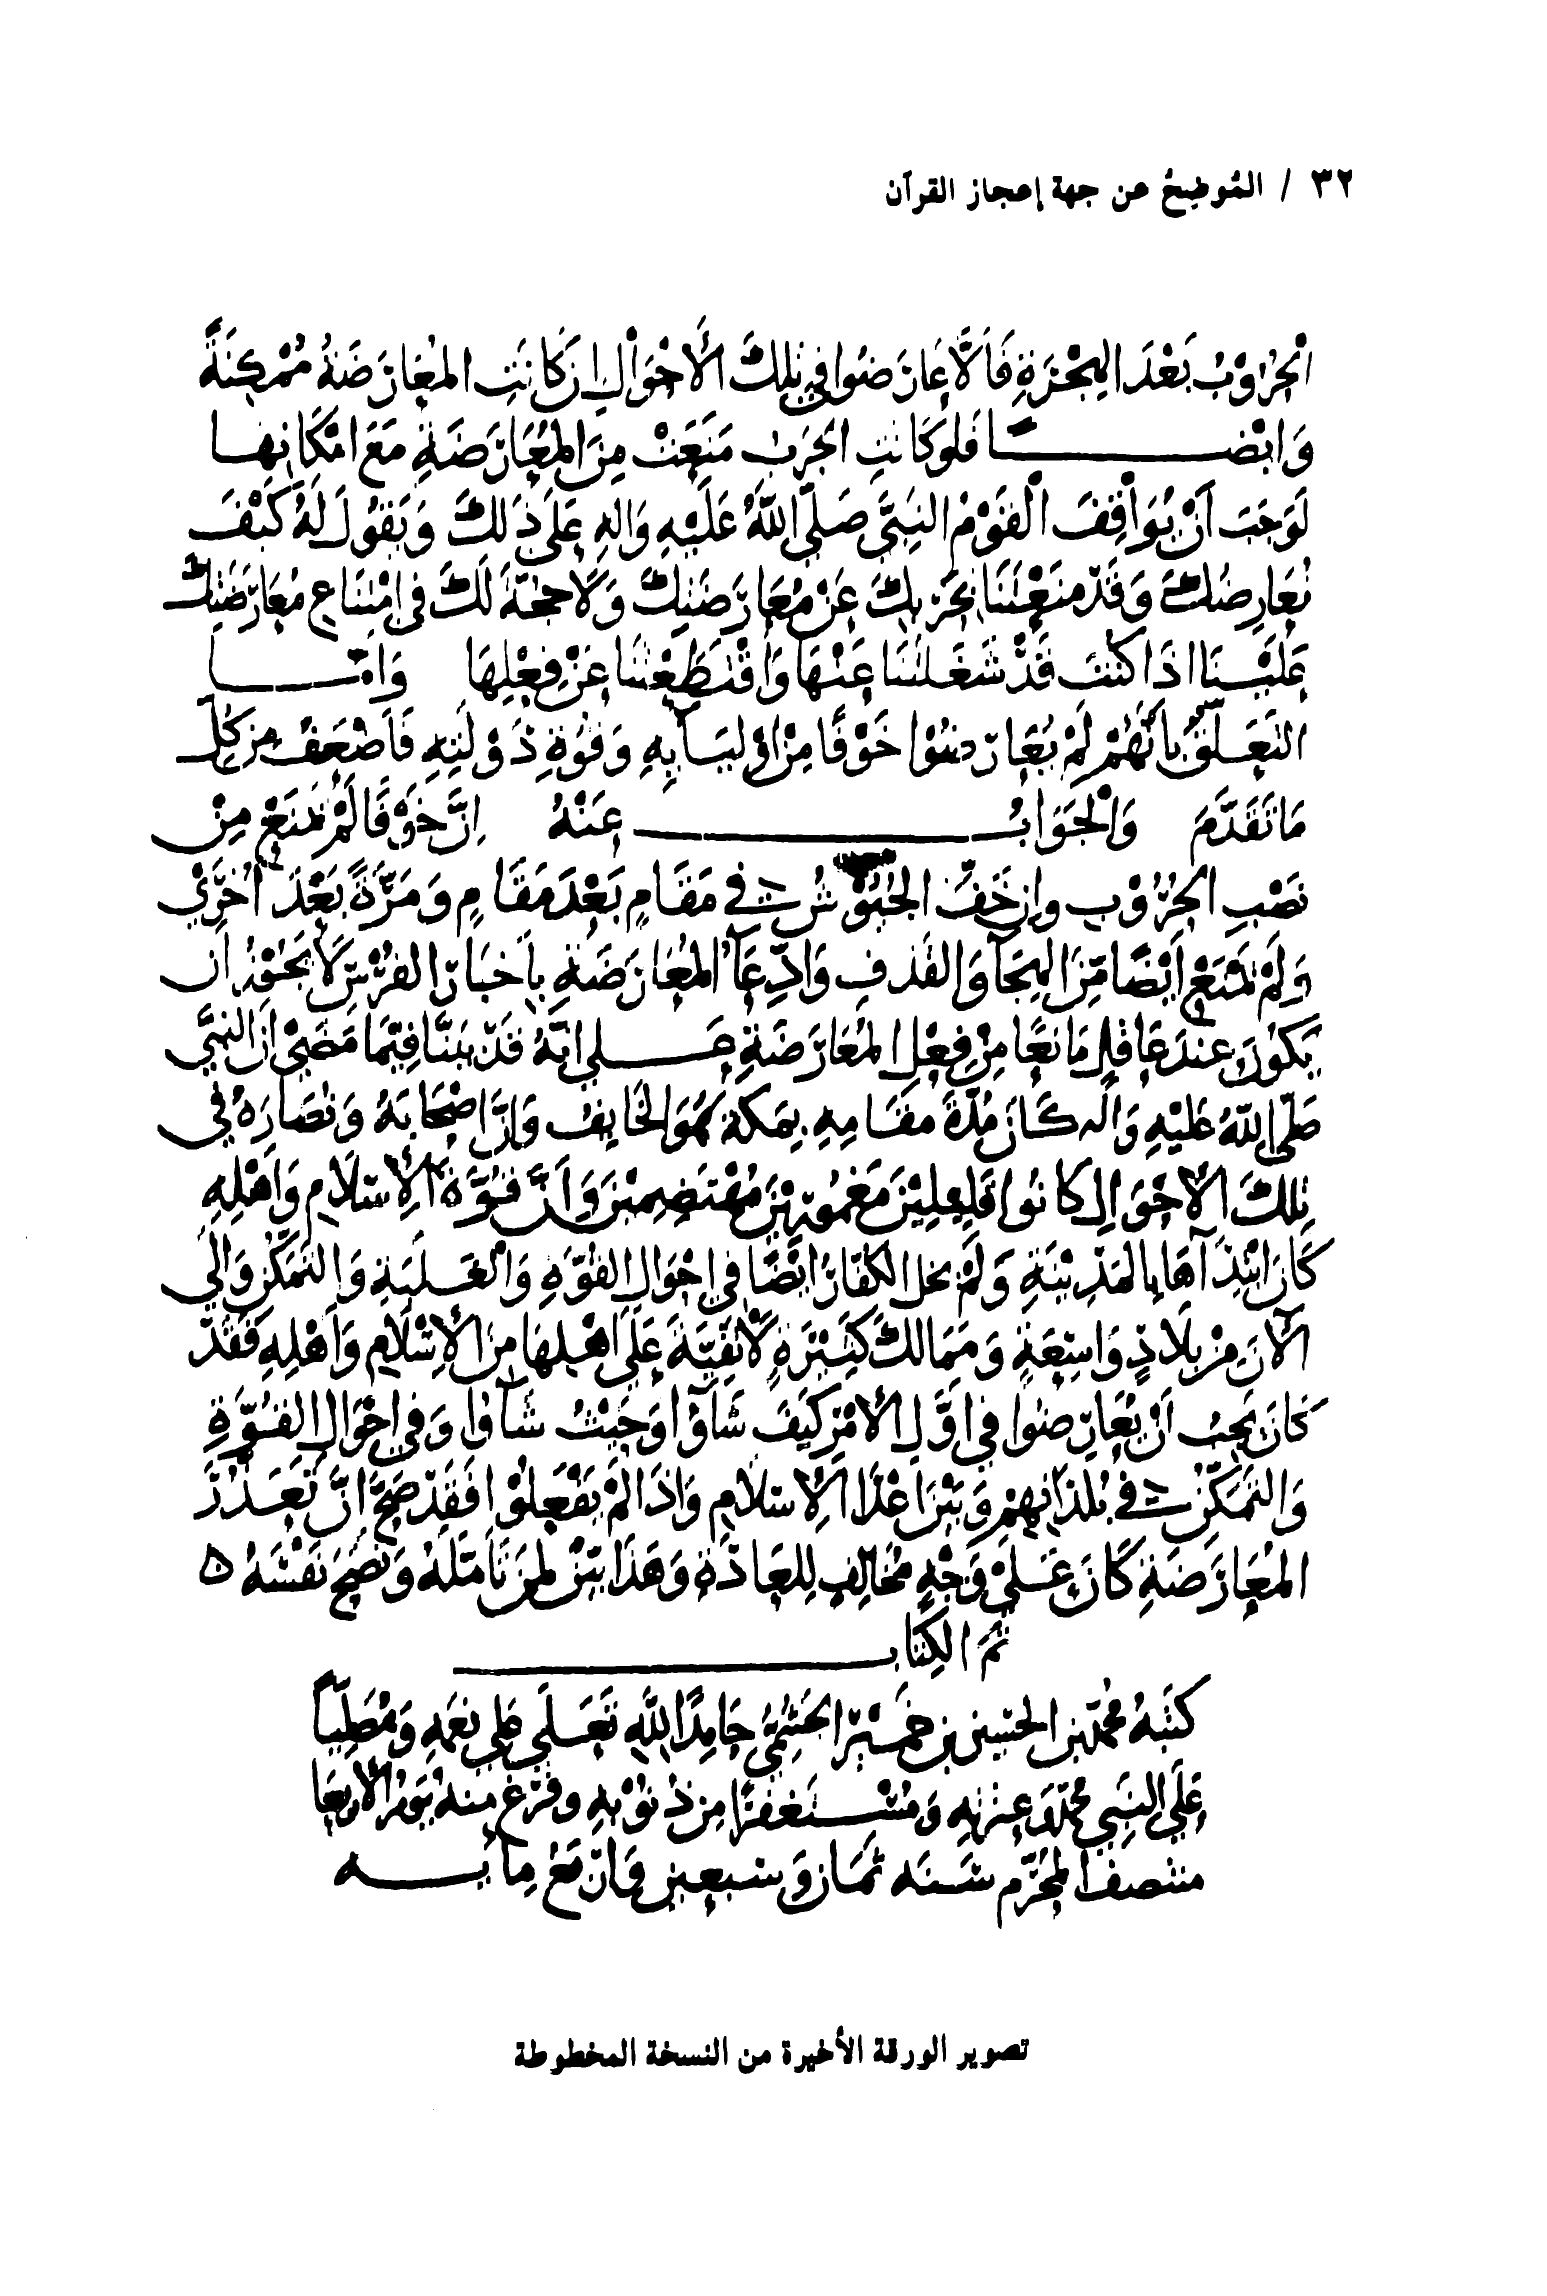 ٣٢ / المُوضِحُ عن جهة إعجاز القرآن
الحُرُوْبُ بَعْدَ الهِجْرَةِ فَأَلَّا عَارَضُوا فِي تِلْكَ الأَحْوَالِ إِن كَانَتِ المُعَارَضَةُ مُمْكِنَةً
وَايْضًا فَلَوْ كَانَتِ الحَرْبُ مَنَعَتْ مِنَ المُعَارَضَةِ مَعَ امْكَانِهَا
لَوَجَبَ أَنْ يُوَاقِفَ الْقَوْمُ النَبِيَّ صَلَّى اللَّهُ عَلَيْهِ وَالِهِ عَلَى ذَلِكَ وَيَقُولَ لَهُ كَيْفَ
نُعَارِضُكَ وَقَدْ مَنَعْتَنَا بِحَرْبِكَ عَنْ مُعَارَضَتِكَ وَلَا حُجَّةَ لَكَ فِي امْتِنَاعِ مُعَارَضَتِكَ
عَلَيْنَا اذَا كُنْتَ قَدْ شَغَلْتَنَا عَنْهَا وَاقْتَطَعْتَنَا عَنْ فِعْلِهَا وَامَّا
التَعَلُّقُ بِأَنَّهُمْ لَمْ يُعَارِضُوا خَوْفًا مِنْ اوْلِيَائِهِ وَقُوَّةِ دَوْلَتِهِ فَأَضْعَفُ مِن كُلِّ
مَا تَقَدَّمَ وَالْجَوَابُ عَنْهُ اِنَّ خَوْفًا لَمْ يَمْنَعْ مِنْ
نَصْبِ الحُرُوْبِ وإِن خَفَّ الجُيُوْشُ فِي مَقَامٍ بَعْدَ مَقَامٍ وَمَرَّةً بَعْدَ أُخْرَى
وَلَمْ يَمْنَعْ أَيْضًا مِّنَ الهِجَآ وَالقَذفِ وَادِّعَآ المُعَارَضَةِ بِأَخبَارِ الفُرْسِ لَا يَجُوزُ أَن
يَكُوْنَ عِندَ عَاقِلٍ مَانِعًا مِنْ فِعْلِ المُعَارَضَةِ عَلى انّهُ قَدْ بَيَّنَّا فِيْمَا مَضَى أَنَّ النبِيَّ
صَلّى اللَّهُ عَلَيْهِ وَآلهِ كَانَ مُدَّةَ مقَامِهِ بِمَكةَ هُوَ الخَايِفُ وَإِنَّ اصْحَابَهُ وَنُصَّارَهُ فِي
تِلْكَ الأَحْوَالِ كَانُوا قَلِيلِيْنَ مَغْمُورِيْنَ مُهْتَضَمِيْنَ وَأَنَّ قُوَّةَ الإِسْلَامِ وَأَهْلِهِ
كَانَ ابْتِدَآهَا بِالمَدِيْنَةِ وَلَمْ يخل الكفارُ ايْضًا فِي احْوَالِ القُوَّةِ وَالْغَلَبَةِ وَالتَمَكُّنِ وَإِلَى
الآنَ مِنْ بِلَادٍ وَاسِعَةٍ وَمَمَالِكَ كَثِيْرَةٍ لَا تَقِيَّةَ عَلَى اهْلِهَا مِنَ الإِسْلَامِ وَأَهْلِهِ فَقَدْ
كَانَ يَجِبُ أَنْ يُعَارِضُوا فِي اوَّلِ الأَمْرِ كَيْفَ شَآؤُا وَحَيْثُ شَآؤا وَفِي احْوَالِ القُوَّةِ
وَالتَمَكُّنِ فِي بُلْدَانِهِمْ وَبَيْنَ اعْدَآ الإِسْلَامِ وَاذَا لَمْ يَفْعَلُوْا فَقَدْ صَحَّ انَّ تَعَذُّرَ
المُعَارَضَةِ كَانَ عَلَى وَجْهٍ مُخَالِفٍ لِلعَادَةِ وَهَذَا بَيِّنٌ لِمَنْ تَأَمَّلَهُ وَنَصَحَ نَفْسَهُ ه
تَمَّ الكِتَابُ
كَتَبَهُ مُحمّد بن الحسين بن حَمِيْر الجُشَمِيُّ حَامِدًا لِلَّهِ تَعَلَى عَلَى نِعَمِهِ وَمُصَلِّيًا
عَلَى النَبِي مُحَمّد وَعِتْرَتِهِ وَمُسْتَغْفِرًا مِن ذُنُوْبِهِ وفَرَغَ مِنهُ يَوْمَ الأَرْبِعَا
منتصف المُحَرَّم سَنَه ثَمَان وَسَبعِين وَارْبَعْ مِايه
تصوير الورقة الأخيرة من النسخة المخطوطة